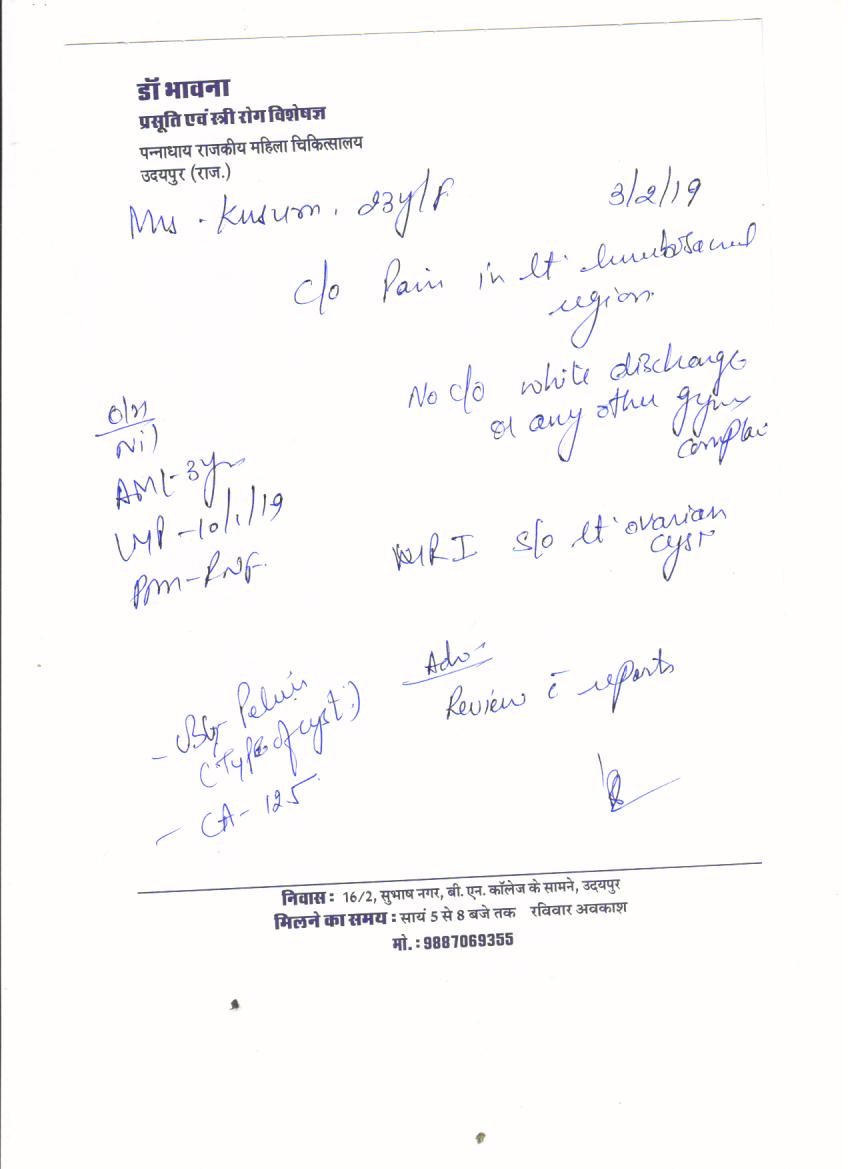 डॉ भावना
प्रसूति एवं स्त्री रोग विशेषज्ञ
पन्नाधाय राजकीय महिला चिकित्सालय
उदयपुर (राज.)
Mrs. Kusum. 23y/F
3/2/19
c/o Pain in lt. lumbosacral
region.
No c/o white discharge
or any other gynae
complai
O/H
Nil
AML-3yr
LMP-10/1/19
MRI s/o lt ovarian
cyst
Adv-
Review c̄ reports
Pelvis
(Type of cyst)
- CA-125
निवास : 16/2, सुभाष नगर, बी. एन. कॉलेज के सामने, उदयपुर
मिलने का समय : सायं 5 से 8 बजे तक रविवार अवकाश
मो. : 9887069355